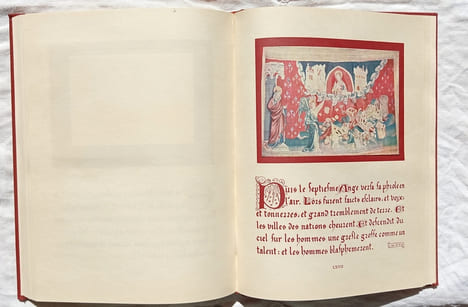 Puis le septiesme Ange versa sa phiole en
l'air. Lors furent faicts esclairs, et voix:
et tonnerres: et grand tremblement de terre. Et
les villes des nations cheurent. Et descendit du
ciel sur les hommes une gresle grosse comme un
talent: et les hommes blasphemerent.